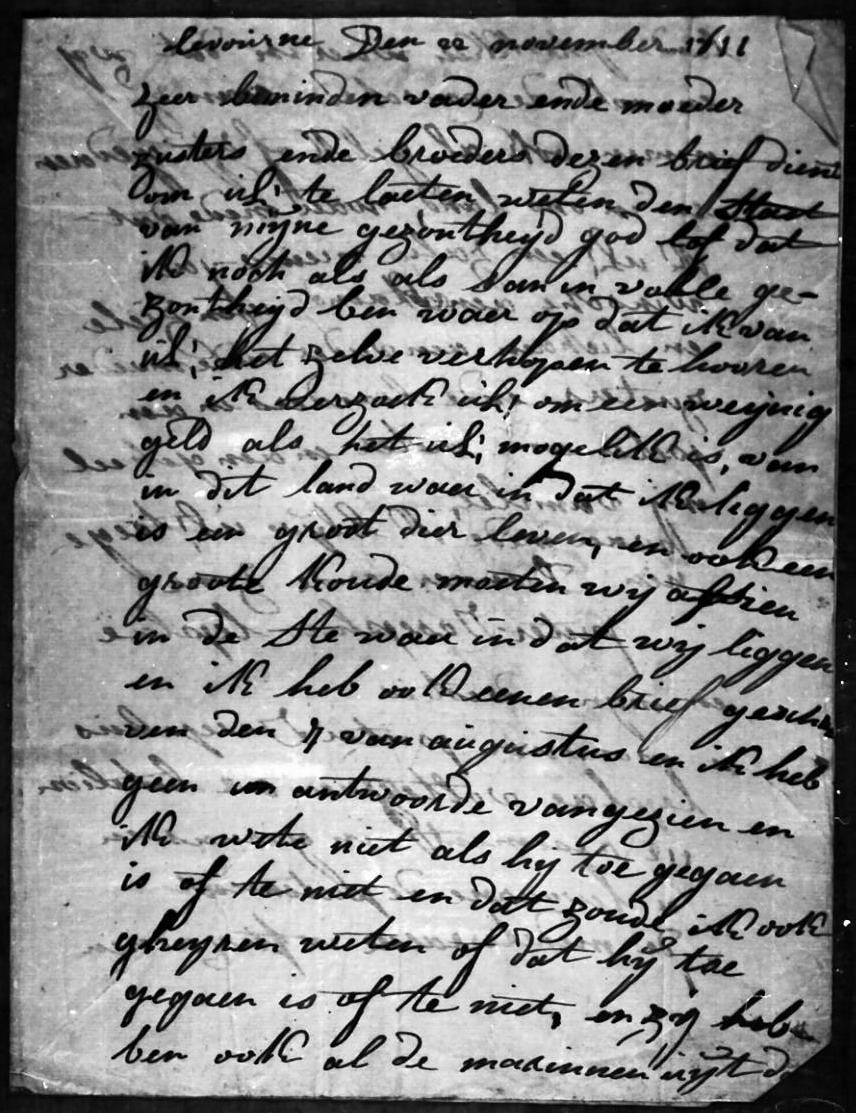 levourne Den 22 november 1811
zeer beminden vader ende moeder
zusters ende broeders dezen brief dient
om ul: te laeten weten den staet
van mijne gezontheijd god lof dat
ik noch als als dan in volle ge-
zontheijd ben waer op dat ik van
ul; het zelve verhopen te hooren
en ik verzoek ul: om een weijnig
geld als het ul; mogelik is, van
in dit land waer in dat ik liggen
is een groot dier leven, en ook een
groote koude moeten wij afzien
in de ste waer in dat wij liggen
en ik heb ook eenen brief geschre
ven den 7 van augustus en ik heb
geen antwoorde van gezien en
ik wete niet als hij toe gegaen
is of te niet en dat zoude ik ook
gheyren weten of dat hij toe
gegaen is of te niet, en zij heb
ben ook al de marinnen uijt